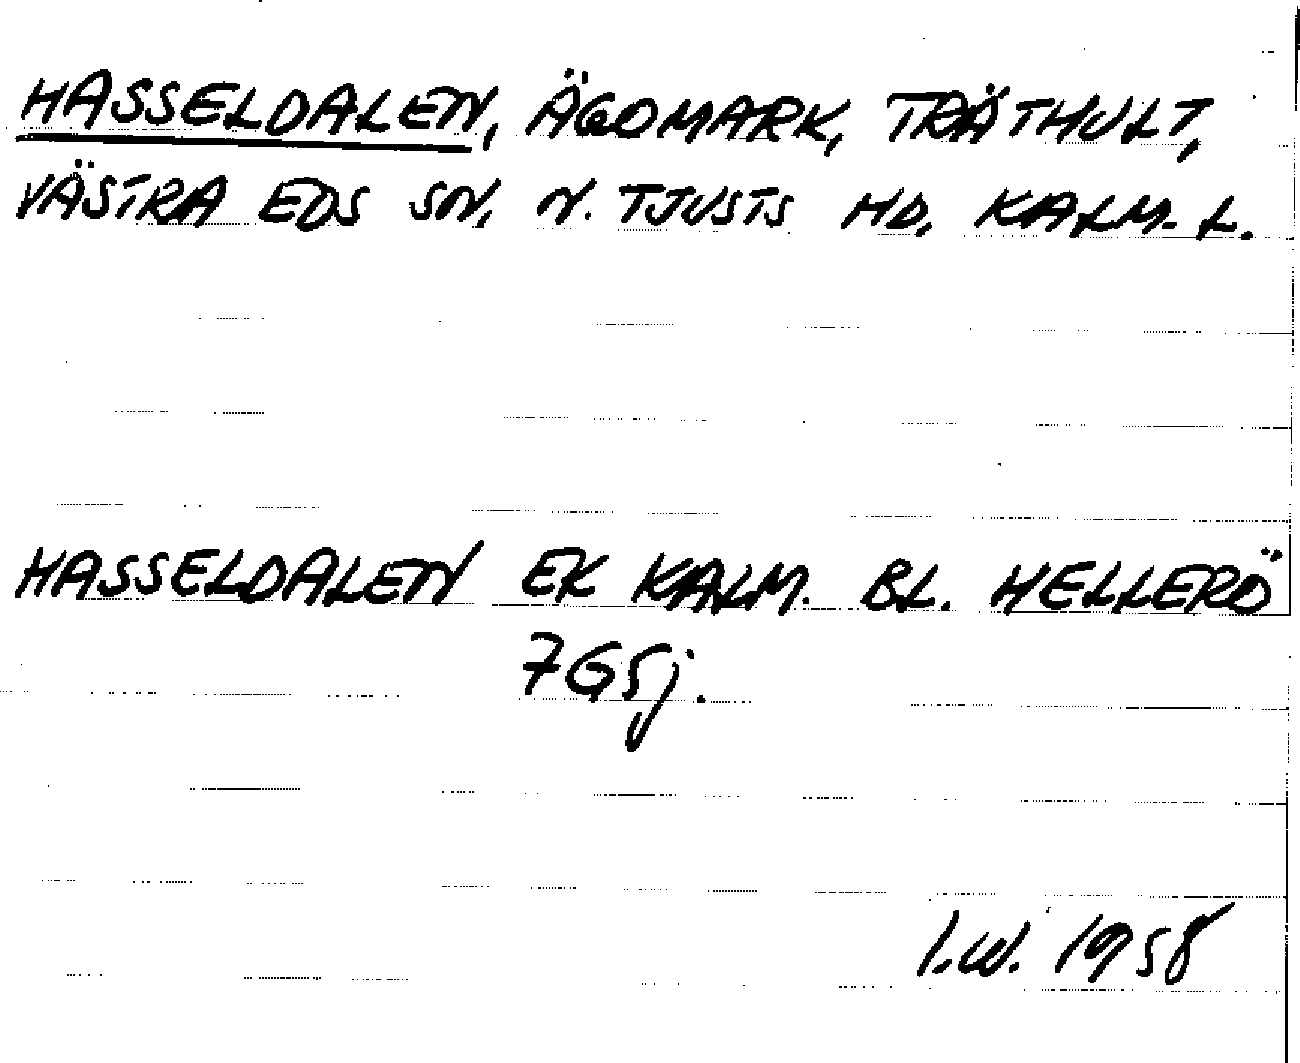 HASSELDALEN, ÄGOMARK, TRÄTHULT,
VÄSTRA EDS SN, N. TJUSTS HD, KALM. L.
HASSELDALEN EK KALM. BL. HELLERÖ
7G5j.
I.W. 1958